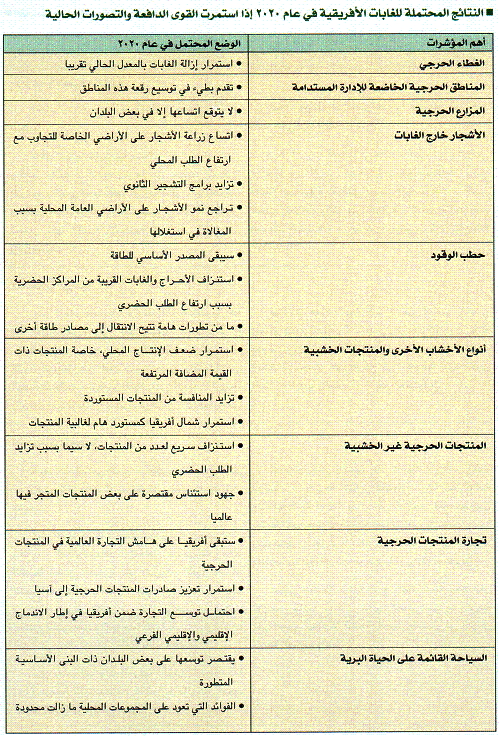 ■ النتائج المحتملة للغابات الأفريقية في عام ٢٠٢٠ إذا استمرت القوى الدافعة والتصورات الحالية
أهم المؤشرات
الوضع المحتمل في عام ٢٠٢٠
الغطاء الحرجي
• استمرار إزالة الغابات بالمعدل الحالي تقريبا
المناطق الحرجية الخاضعة للإدارة المستدامة
• تقدم بطيء في توسيع رقعة هذه المناطق
المزارع الحرجية
• لا يتوقع اتساعها إلا في بعض البلدان
الأشجار خارج الغابات
• اتساع زراعة الأشجار على الأراضي الخاصة للتجاوب مع
ارتفاع الطلب المحلي
• تزايد برامج التشجير الثانوي
• تراجع نمو الأشجار على الأراضي العامة المحلية بسبب
المغالاة في استغلالها
حطب الوقود
• سيبقى المصدر الأساسي للطاقة
• استنزاف الأحراج والغابات القريبة من المراكز الحضرية
بسبب ارتفاع الطلب الحضري
• ما من تطورات هامة تتيح الانتقال إلى مصادر طاقة أخرى
أنواع الأخشاب الأخرى والمنتجات الخشبية
• استمرار ضعف الإنتاج المحلي، خاصة المنتجات ذات
القيمة المضافة المرتفعة
• تزايد المنافسة من المنتجات المستوردة
• استمرار شمال أفريقيا كمستورد هام لغالبية المنتجات
المنتجات الحرجية غير الخشبية
• استنزاف سريع لعدد من المنتجات، لا سيما بسبب تزايد
الطلب الحضري
• جهود استئناس مقتصرة على بعض المنتجات المتجر فيها
عالميا
تجارة المنتجات الحرجية
• ستبقى أفريقيا على هامش التجارة العالمية في المنتجات
الحرجية
• استمرار تعزيز صادرات المنتجات الحرجية إلى آسيا
• احتمال توسع التجارة ضمن أفريقيا في إطار الاندماج
الإقليمي والإقليمي الفرعي
السياحة القائمة على الحياة البرية
• يقتصر توسعها على بعض البلدان ذات البنى الأساسية
المتطورة
• الفوائد التي تعود على المجموعات المحلية ما زالت محدودة